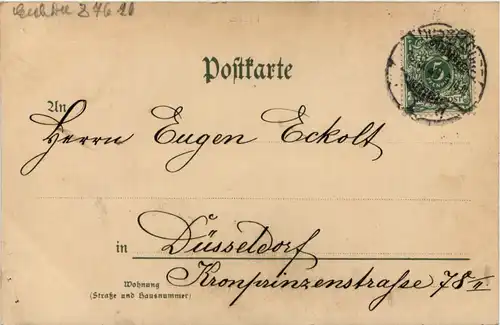 Postkarte
An
Herrn Eugen Eckolt
in Düsseldorf
Wohnung
(Straße und Hausnummer)
Kronprinzenstraße 78 II
5